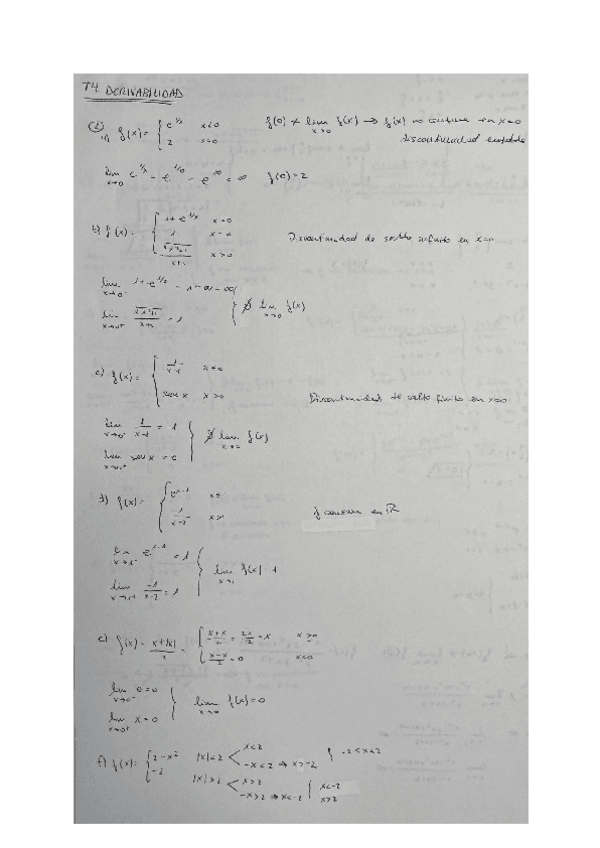 T4. DERIVABILIDAD
a) f(x) = { e^1/x x≠0 f(0) ≠ lim x→0 f(x) → f(x) no continua en x=0
2 x=0 discontinuidad evitable
lim x→0 e^1/x = e^1/0 = e^∞ = ∞ f(0)=2
b) f(x) = { 1+e^1/x
1
x>0 Discontinuidad de salto infinito en x=0
lim x→0-
lim x→0+ = 1 } ∄ lim x→0 f(x)
c) f(x) = { 1/x-1
sen x x>0 Discontinuidad de salto finito en x=0
lim x→0- 1/x-1 = 1
lim x→0+ sen x = 0 } ∄ lim f(x)
d) f(x) = { e^x-1
f continua en ℝ
lim x→1- e^x-1 = 1
lim x→1+ -1/x-2 = 1 } lim x→1 f(x) = 1
e) f(x) = x+|x|/2 = { x+x/2 = 2x/2 = x
x-x/2 = 0 x<0
lim x→0- 0=0
lim x→0+ x=0 } lim x→0 f(x)=0
f) f(x) = { 2-x² |x|<2 < x<2
-2 -x<2 → x>-2 } -2<x<2
|x|>2 < x>2
-x>2 → x<-2 { x<-2
x>2